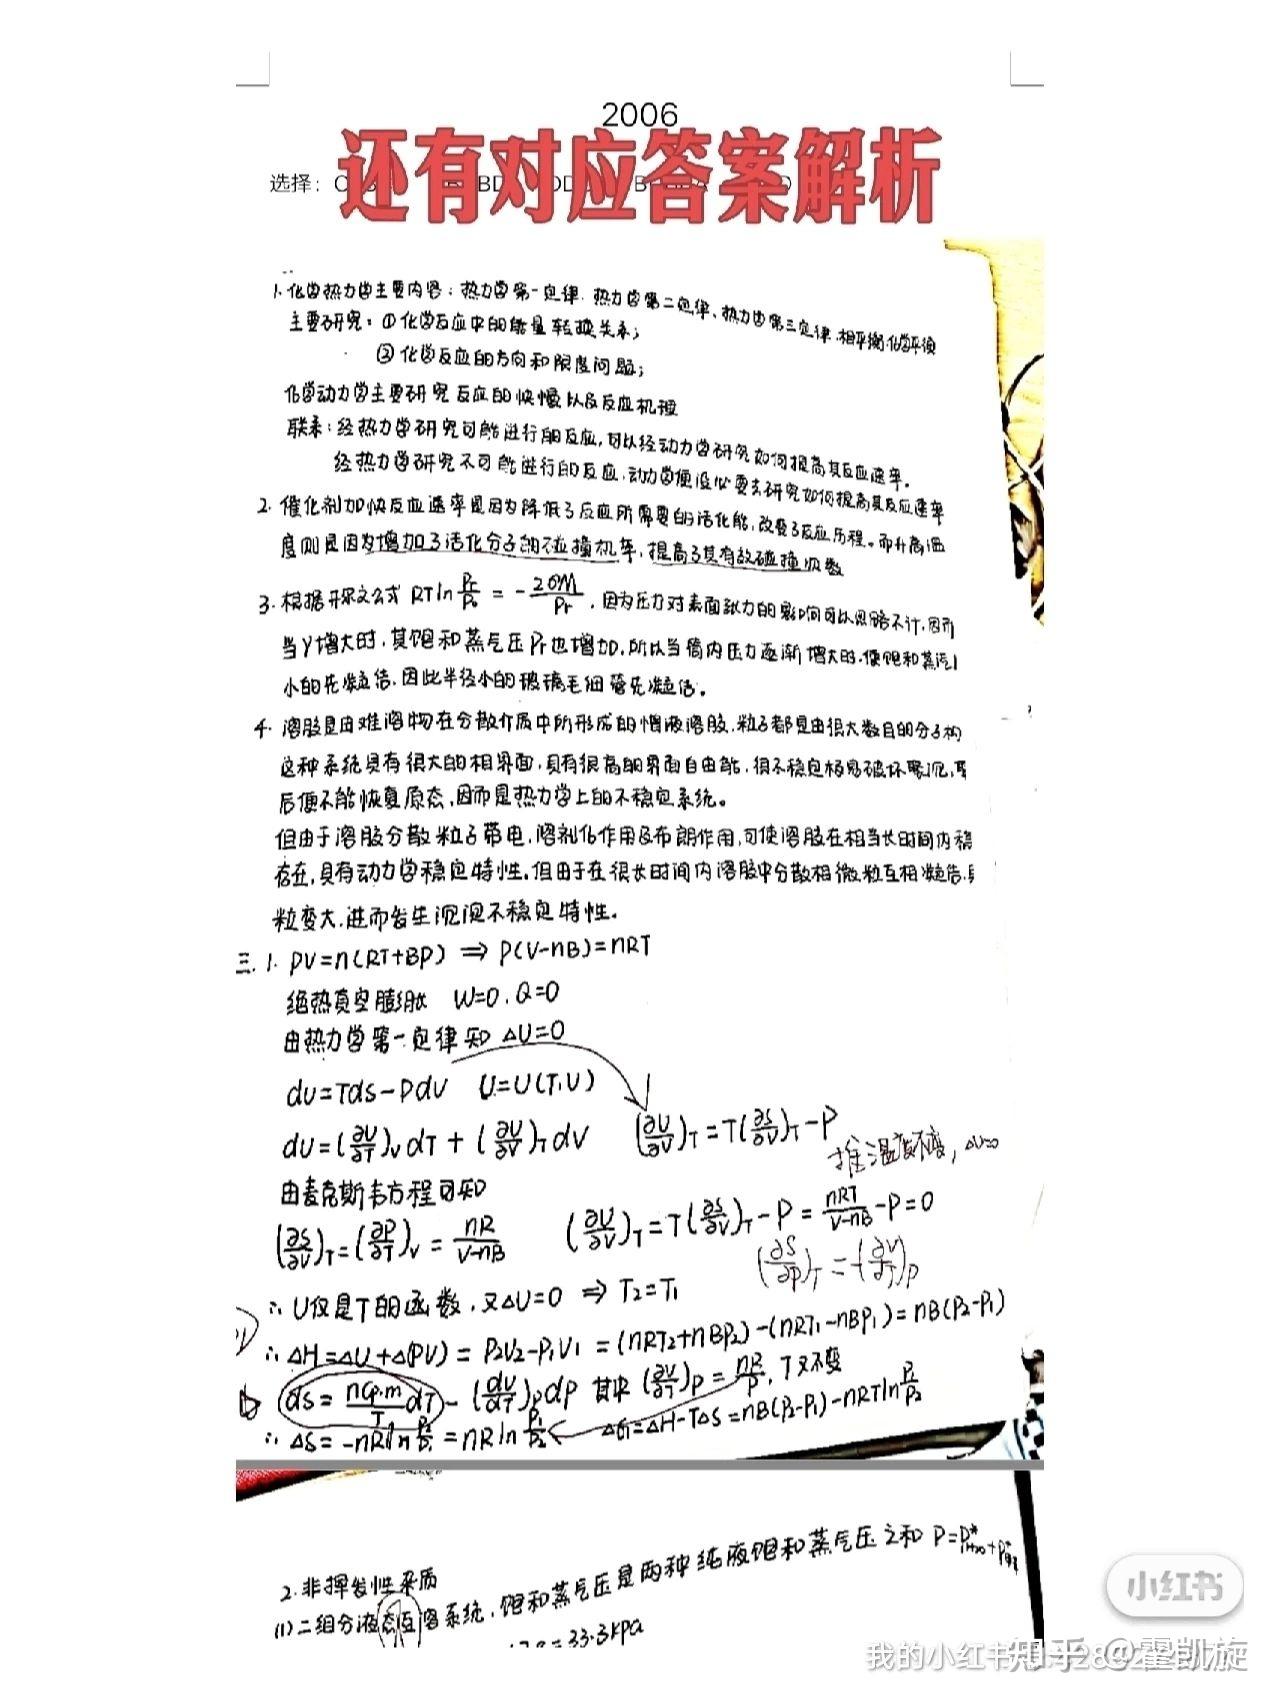 2006
还有对应答案解析
选择：
1. 化学热力学主要内容：热力学第一定律、热力学第二定律、热力学第三定律、相平衡、化学平衡
主要研究：①化学反应中的能量转换关系；
②化学反应的方向和限度问题；
化学动力学主要研究反应的快慢以及反应机理
联系：经热力学研究可能进行的反应，可以经动力学研究如何提高其反应速率。
经热力学研究不可能进行的反应，动力学便没必要去研究如何提高其反应速率
2. 催化剂加快反应速率是因为降低了反应所需要的活化能，改变了反应历程。而升高温
度则是因为增加了活化分子的碰撞机率，提高了其有效碰撞次数
3. 根据开尔文公式 RTln Pr/P0 = -2σM/ρr，因为压力对表面张力的影响可以忽略不计，因而
当γ增大时，其饱和蒸气压Pr也增加，所以当管内压力逐渐增大时，使饱和蒸汽
小的先凝结，因此半径小的玻璃毛细管先凝结。
4. 溶胶是由难溶物在分散介质中所形成的憎液溶胶，粒子都是由很大数目的分子构
这种系统具有很大的相界面，具有很高的界面自由能，很不稳定极易被破坏聚沉，聚
后便不能恢复原态，因而是热力学上的不稳定系统。
但由于溶胶分散粒子带电，溶剂化作用及布朗作用，可使溶胶在相当长时间内稳
存在，具有动力学稳定特性。但由于在很长时间内溶胶中分散相微粒互相凝结，
粒变大，进而发生沉淀不稳定特性。
三. 1. PV=n(RT+BP) ⇒ P(V-nB)=nRT
绝热真空膨胀 W=0, Q=0
由热力学第一定律知 ΔU=0
dU=TdS-PdV U=U(T,V)
dU=(∂U/∂T)V dT + (∂U/∂V)T dV (∂U/∂V)T=T(∂S/∂V)T-P
推温度不变，ΔU=0
由麦克斯韦方程可知
(∂S/∂V)T=(∂P/∂T)V=nR/(V-nB) (∂U/∂V)T=T(∂S/∂V)T-P=nRT/(V-nB)-P=0
(∂S/∂P)T=-(∂V/∂T)P
∴U仅是T的函数，又ΔU=0 ⇒ T2=T1
∴ΔH=ΔU+Δ(PV)=P2V2-P1V1=(nRT2+nBP2)-(nRT1-nBP1)=nB(P2-P1)
dS=nCp.m/T dT-(dV/dT)P dP 其中(∂V/∂T)P=nR/P，T又不变
∴ΔS=-nRln P2/P1=nRln P1/P2 ΔG=ΔH-TΔS=nB(P2-P1)-nRTln P1/P2
2. 非挥发性杂质
(1)二组分液态互溶系统，饱和蒸气压是两种纯液饱和蒸气压之和
=33.3kPa
小红书
知乎 @霍凯旋
我的小红书